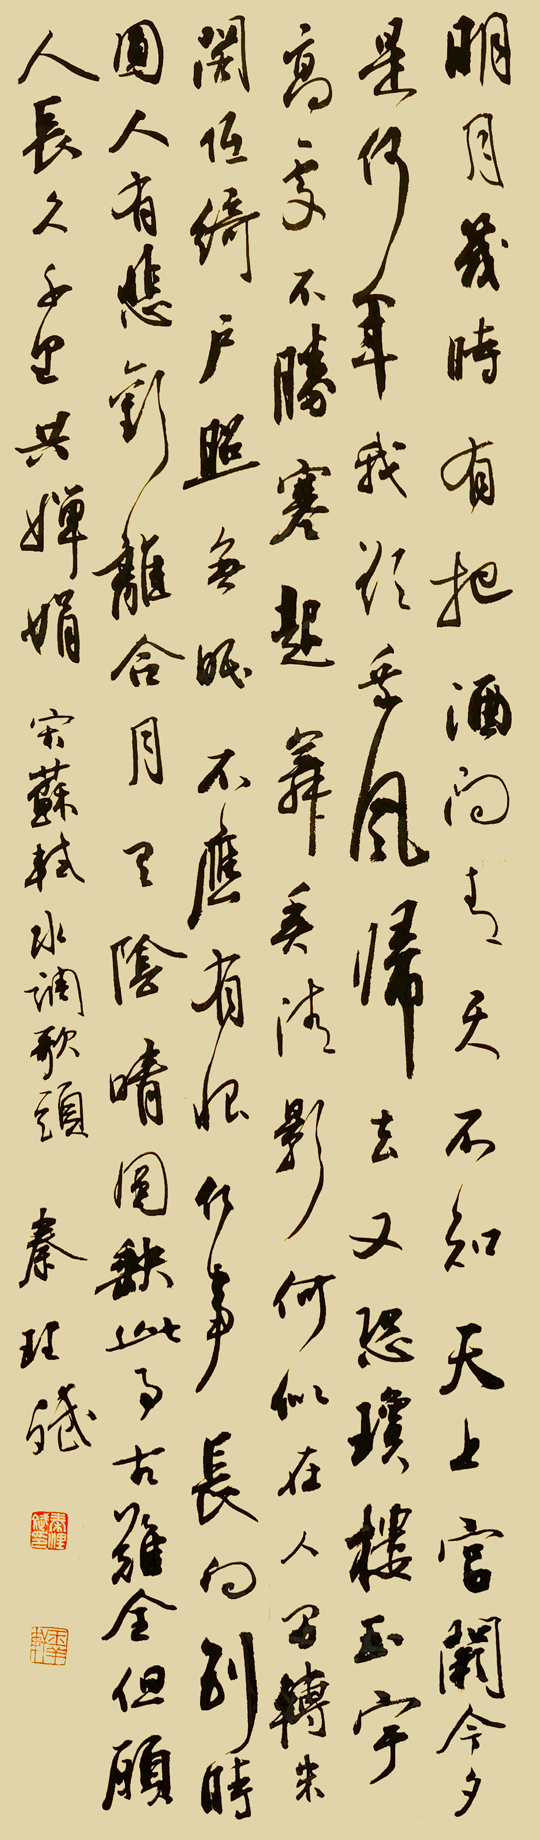 明月幾時有把酒问青天不知天上宮闕今夕
是何年我欲乘風歸去又恐瓊樓玉宇
高處不勝寒起舞弄清影何似在人间轉朱
閣低綺户照無眠不應有恨何事長向别時
圓人有悲歡離合月有陰晴圆缺此事古難全但願
人長久千里共嬋娟 宋蘇軾水調歌頭 秦